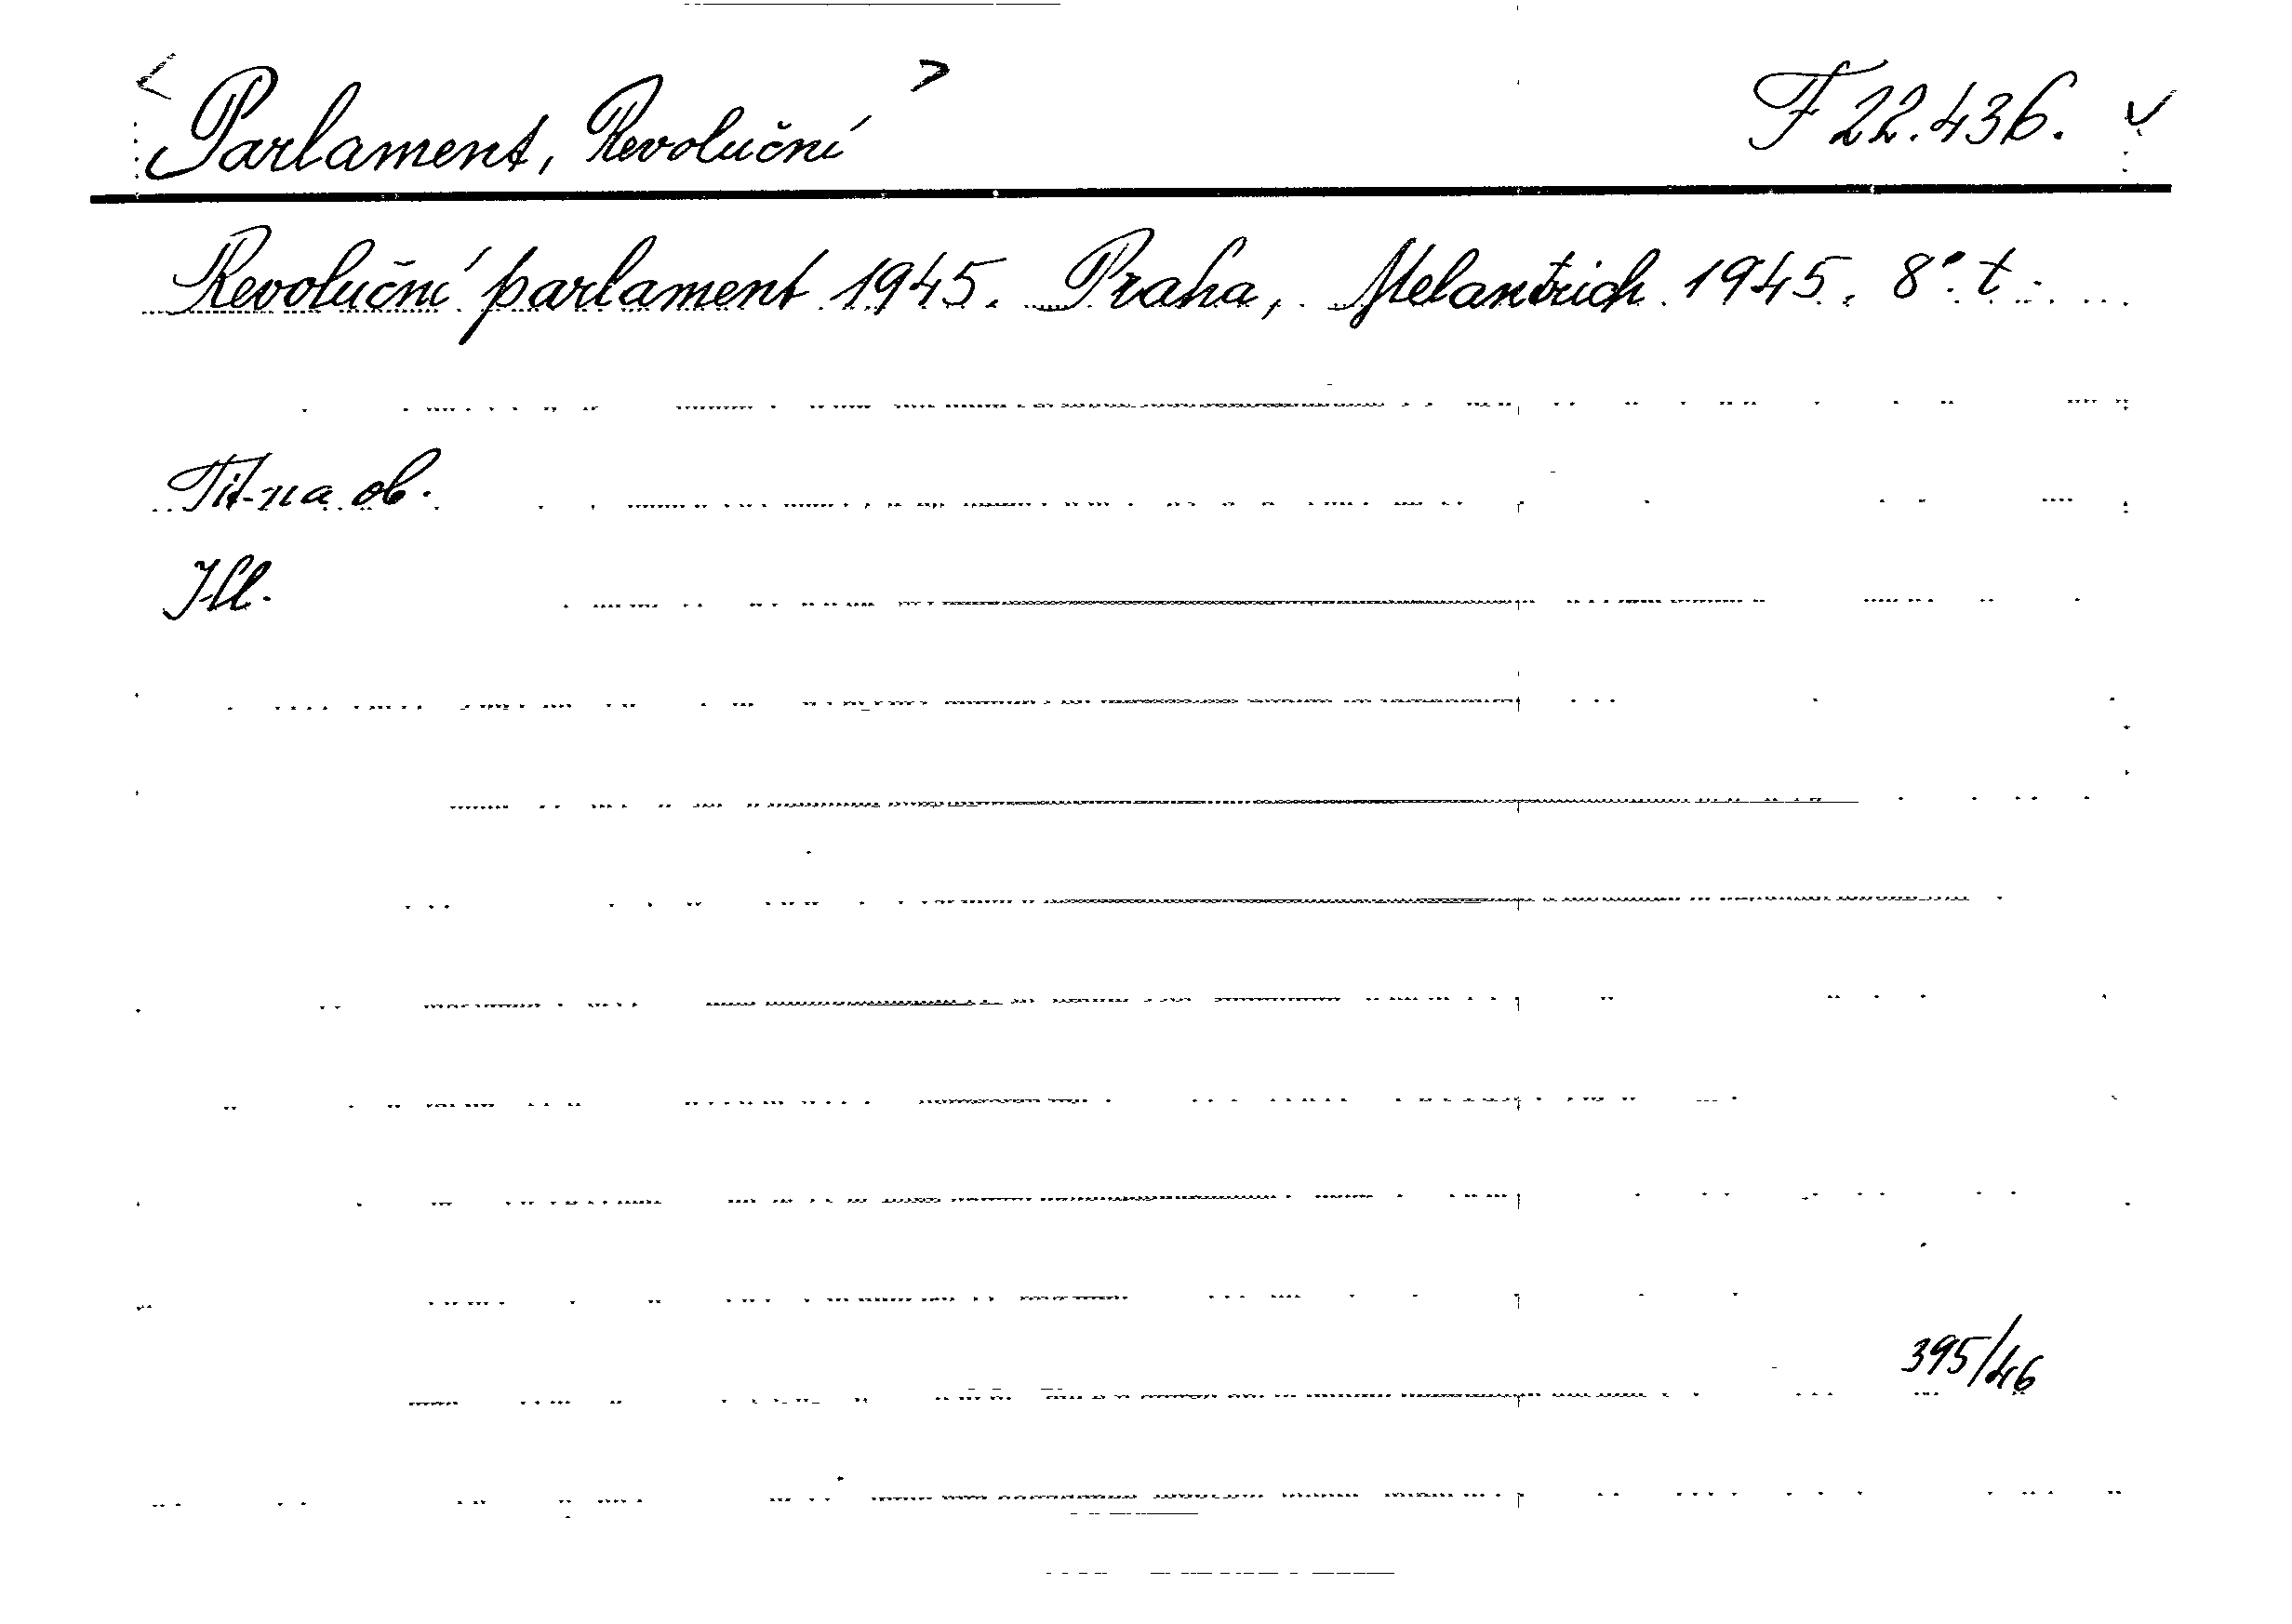 < Parlament, Revoluční > F 22.436. ✓
Revoluční parlament 1945. Praha, Melantrich 1945. 8°. t.
Tit. na ob.
Ill.
395/46